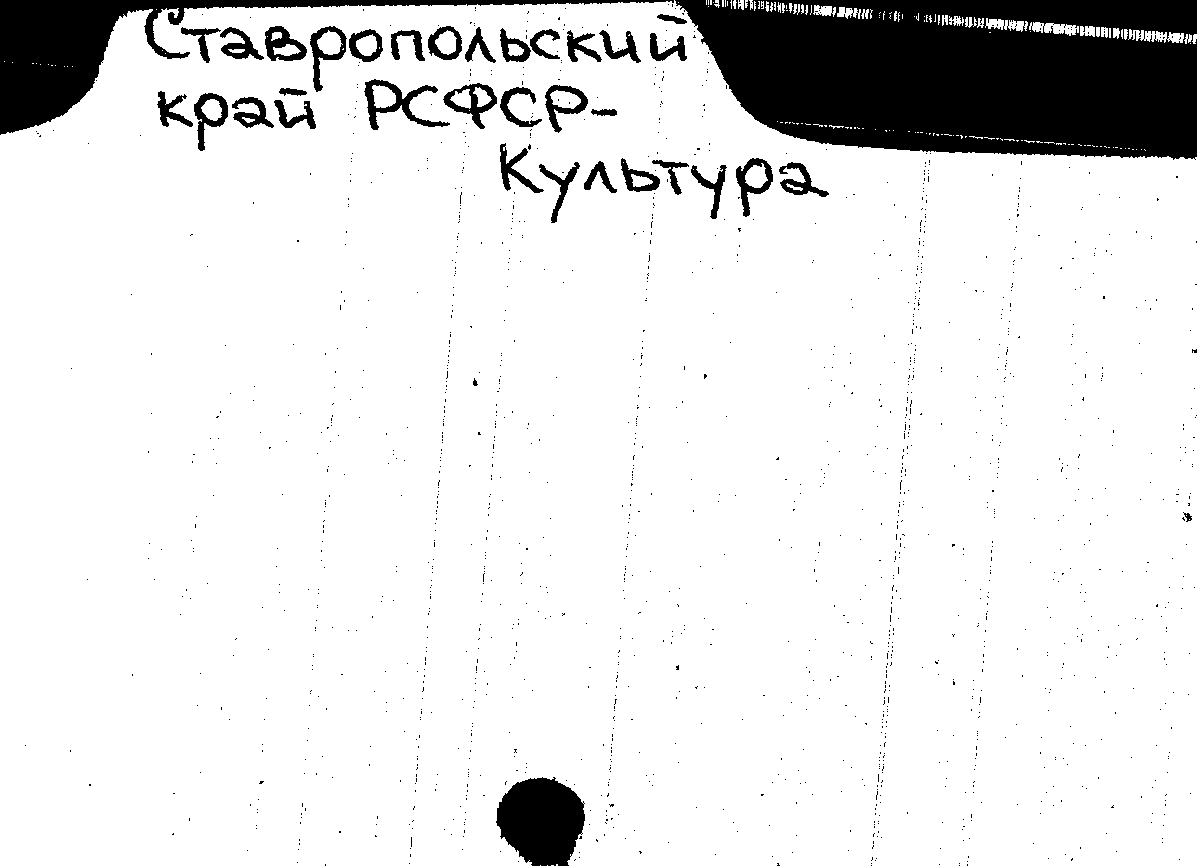 Ставропольский
край РСФСР-
Культура